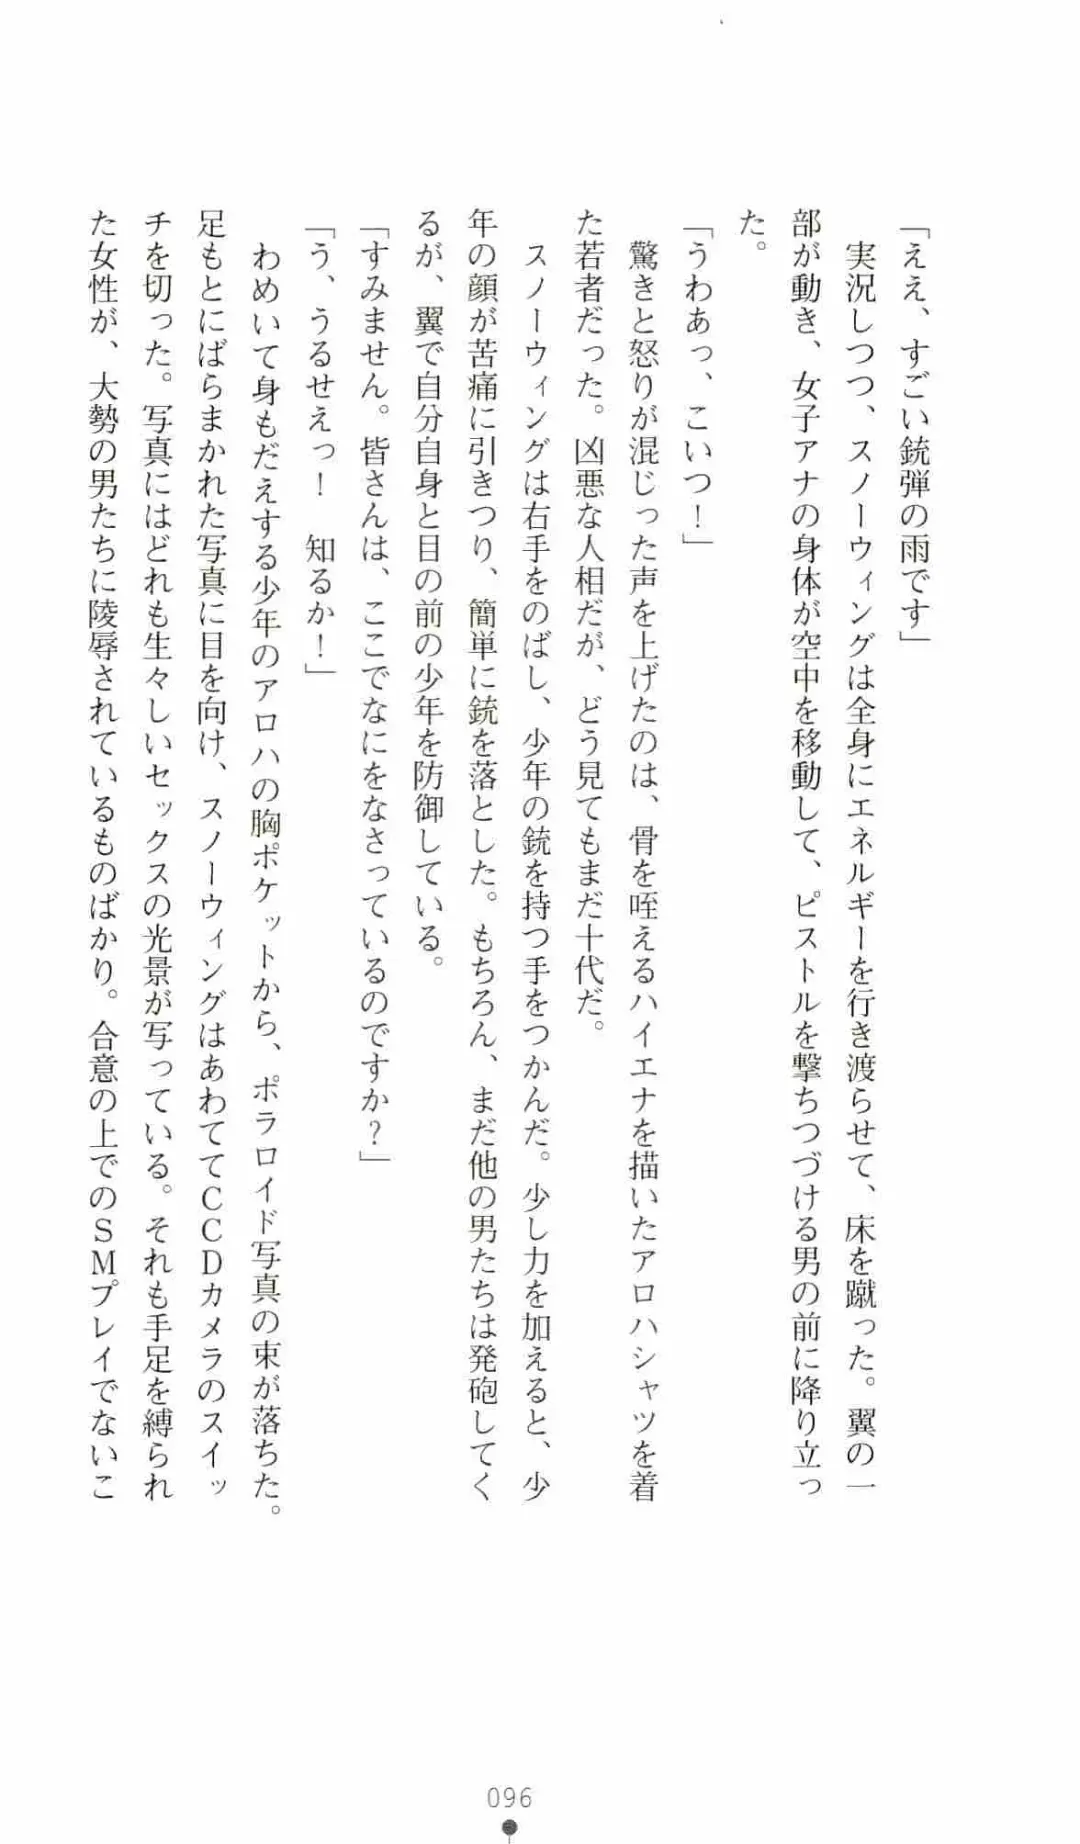 「ええ、すごい銃弾の雨です」
実況しつつ、スノーウィングは全身にエネルギーを行き渡らせて、床を蹴った。翼の一
部が動き、女子アナの身体が空中を移動して、ピストルを撃ちつづける男の前に降り立っ
た。
「うわあっ、こいつ！」
驚きと怒りが混じった声を上げたのは、骨を咥えるハイエナを描いたアロハシャツを着
た若者だった。凶悪な人相だが、どう見てもまだ十代だ。
スノーウィングは右手をのばし、少年の銃を持つ手をつかんだ。少し力を加えると、少
年の顔が苦痛に引きつり、簡単に銃を落とした。もちろん、まだ他の男たちは発砲してく
るが、翼で自分自身と目の前の少年を防御している。
「すみません。皆さんは、ここでなにをなさっているのですか？」
「う、うるせえっ！　知るか！」
わめいて身もだえする少年のアロハの胸ポケットから、ポラロイド写真の束が落ちた。
足もとにばらまかれた写真に目を向け、スノーウィングはあわててＣＣＤカメラのスイッ
チを切った。写真にはどれも生々しいセックスの光景が写っている。それも手足を縛られ
た女性が、大勢の男たちに陵辱されているものばかり。合意の上でのＳＭプレイでないこ
096